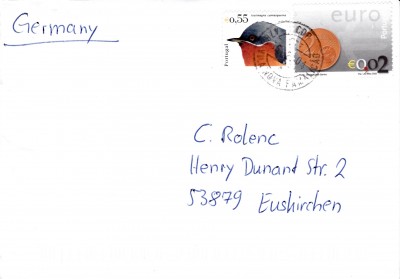 Germany
€0,55
Portugal
euro
€0,02
C. Rolenc
Henry Dunant Str. 2
53879 Euskirchen